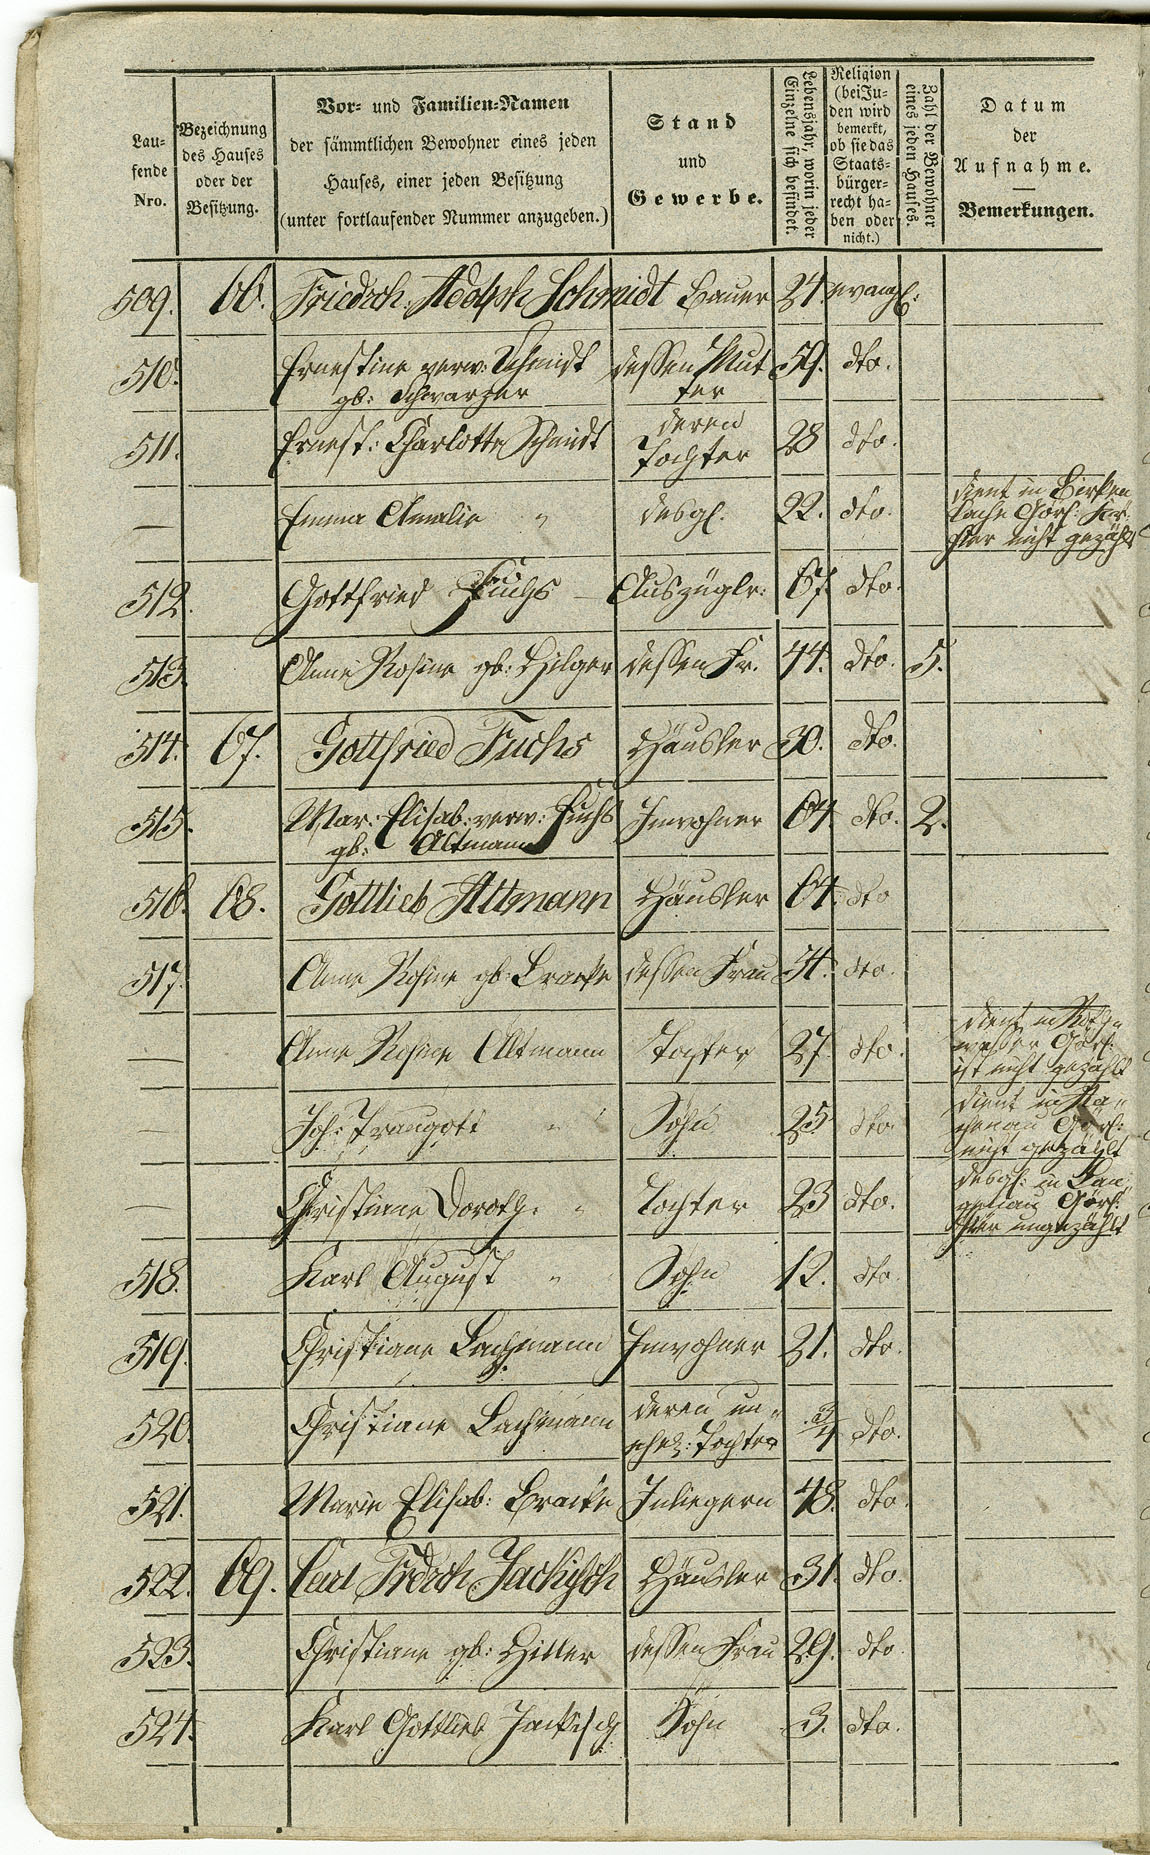 Laufende Nro.
Bezeichnung des Hauses oder der Besitzung.
Vor- und Familien-Namen
der sämmtlichen Bewohner eines jeden
Hauses, einer jeden Besitzung
(unter fortlaufender Nummer anzugeben.)
Stand
und
Gewerbe.
Lebensjahr, worin jeder Einzelne sich befindet.
Religion (bei Juden wird bemerkt, ob sie das Staatsbürgerrecht haben oder nicht.)
Zahl der Bewohner eines jeden Hauses.
Datum
der
Aufnahme.
Bemerkungen.
509. 66. Friedrch. Adolph Schmidt Bauer 24 evangl:
510. Ernestine verw: Schmidt dessen Mut 59. dto.
gb: Schwarzer ter
511. Ernest: Charlotte Schmidt deren Tochter 28 dto.
— Emma Amalie " desgl. 22. dto. dient in Birken
lache Görl: Kr.
hier nicht gezählt
512. Gottfried Fuchs — Auszüglr: 67. dto.
513. Anne Rosine gb: Hilger dessen Fr. 44. dto. 5.
514. 67. Gottfried Fuchs Häusler 30. dto.
515. Mar: Elisab: verw: Fuchs Inwohner 64. dto. 2.
gb: Altmann
516. 68. Gottlieb Altmann Häusler 64. dto
517. Anne Rosine gb: Bracke dessen Frau dto.
— Anne Rosine Altmann Tochter 27. dto. dient in
Görl:
ist nicht gezählt
— Joh: Traugott " Sohn 25 dto. dient in
Görl:
nicht gezählt
— Christiane Doroth: " Tochter 23 dto. desgl: in Lan
genau Görl:
hier ungezählt
518. Karl August " Sohn 12. dto.
519. Christiane Bachmann Inwohner 21. dto.
520. Christiane Bachmann deren un= 3/4 dto.
ehel: Tochter
521. Marie Elisab: Bracke Inliegern 48. dto.
522. 69. Carl Frdrch Jackisch Häusler 31. dto.
523. Christiane gb: Hiller dessen Frau 29. dto
524. Karl Gottlieb Jackisch Sohn 3. dto.